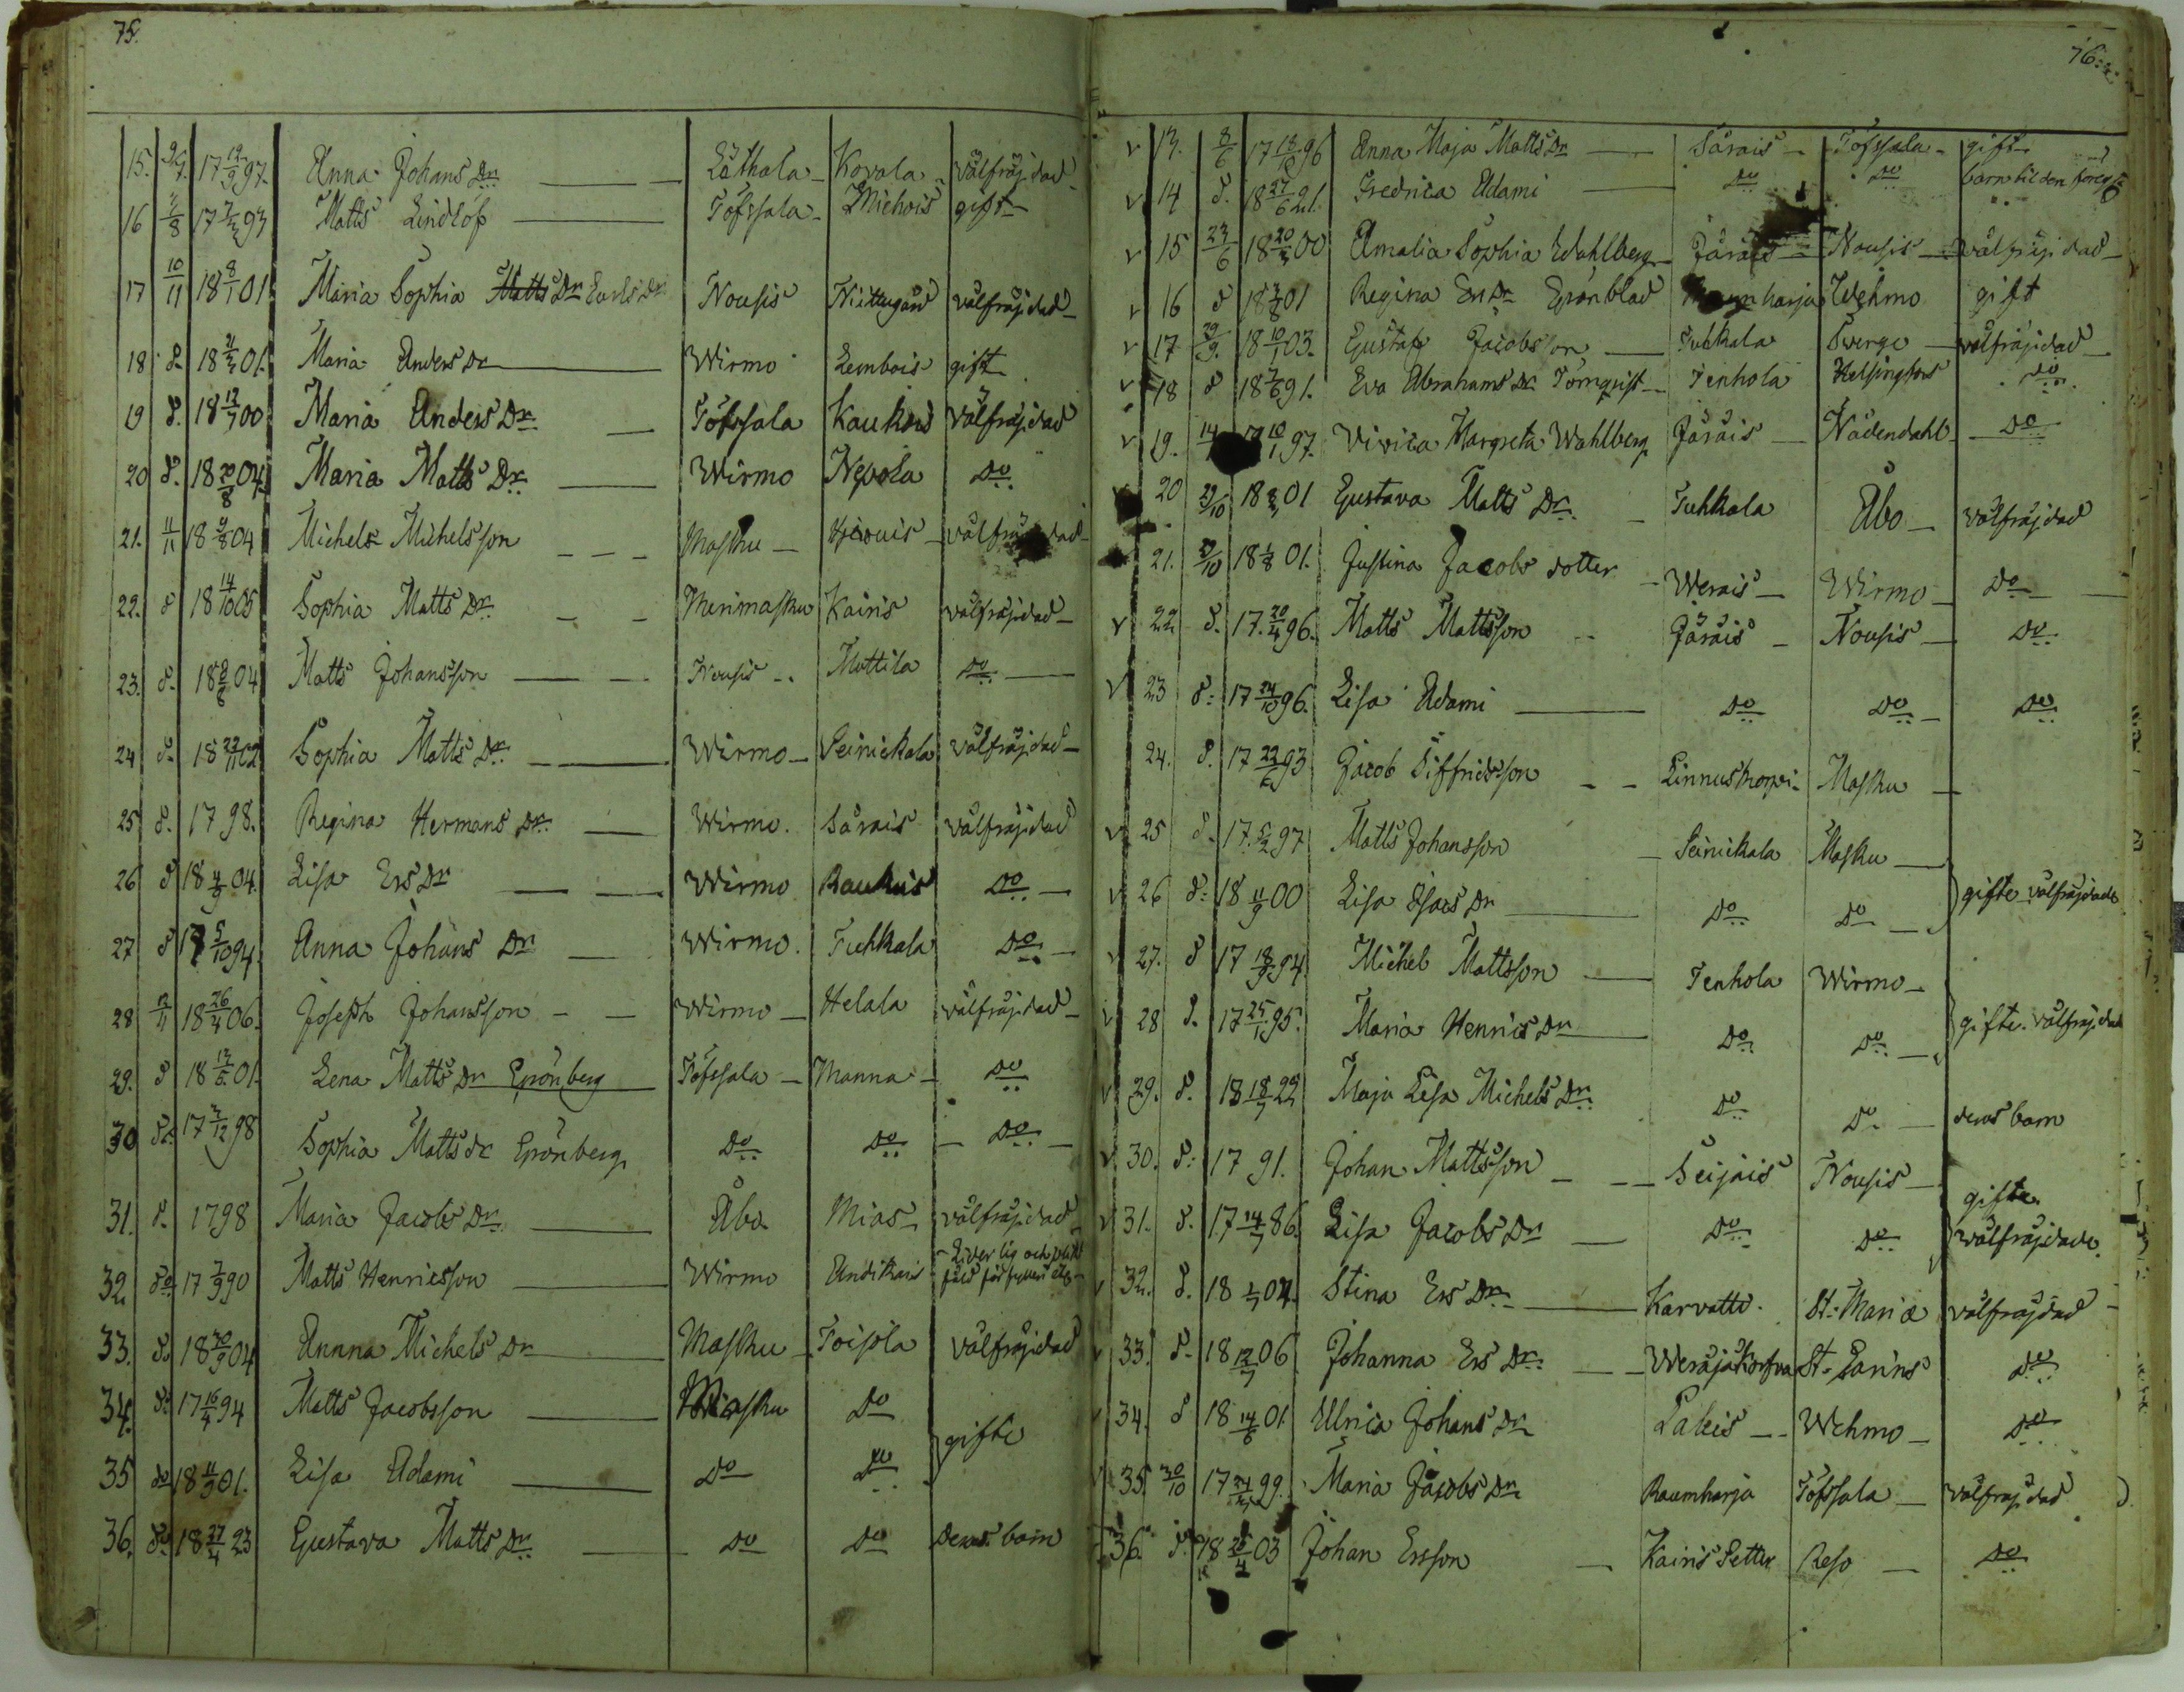 75.
15. 9/9. 17 12/9 97. Anna Johans Dr. Läthala Kovala välfräjdad
16 7/8 17 7/2 93 Matts Lindlöf Töfssala Michois gift
17 10/11 18 8/1 01 Maria Sophia Matts Dr Carls Dr Nousis Niittugård välfräjdad
18 d. 18 21/3 01. Maria Anders Dr Wirmo Lembois gift
19 d. 18 12/7 00 Maria Anders Dr. Töfsala Kaukois välfräjdad
20 d. 18 20/8 04. Maria Matts Dr. Wirmo Nepola Do
21. 11/11 18 9/8 04 Michels Michelsson Masku välfräjdad
22. d 18 14/10 05 Sophia Matts Dr. Merimasku Kairis välfräjdad
23. d. 18 04 Matts Johansson Nousis Mattila Do
24 d. 18 22/11 02 Sophia Matts Dr. Wirmo Seinickala välfräjdad
25 d. 17 98. Regina Hermans Dr. Wirmo. Särais välfräjdad
26 d 18 4/9 04. Lisa Ers Dr Wirmo Raukuis Do
27 d 17 5/10 94. Anna Johans Dr Wirmo. Tuhkala Do
28 12/11 18 26/4 06. Joseph Johansson Wirmo Helala välfräjdad
29. d 18 12/6 01. Lena Matts Dr Grönberg Töfssala Manna Do
30 d. 17 3/12 98 Sophia Matts Dr Grönberg Do Do Do
31. d. 1798 Maria Jacobs Dr. Åbo Mias välfräjdad
32 do 17 7/9 90 Matts Henricsson Wirmo Andikais
33. d. 18 30/9 04 Annna Michels Dr Masku Toisola välfräjdad
34. d. 17 16/4 94 Matts Jacobsson Masku Do
gifte
35 do 18 11/3 01. Lisa Adami Do Do
36. do 18 27/4 23 Gustava Matts Dr. Do Do deras barn
76.
v 13. 8/6 17 96 Anna Maja Matts Dr Särais Töfssala gift
v 14 d. 18 27/6 21. Fredrica Adami Do Do barn til den föreg.
v 15 23/6 18 20/3 00 Amalia Sophia Wahlberg Järais Nousis välfräjdad
v 16 d 18 3/8 01 Regina Ers Dr Grönblad Raumharja Wehmo gift
v 17 29/9. 18 10/1 03. Gustaf Jacobsson Tuhkala Sverge välfräjdad
v 18 d 18 91. Eva Abrahams Dr. Törnqvist Tenhola Helsingfors Do
v 19. 17 10/1 97. Virica Margreta Wahlberg Järäis Nådendahl Do
20 29/10 18 01 Gustava Matts Dr. Tuhkala Åbo välfräjdad
21. 29/10 18 1/8 01. Justina Jacobs dotter Werais Wirmo Do
v 22 d. 17. 20/4 96. Matts Mattsson Järäis Nousis Do
v 23 d. 17 24/10 96. Lisa Adami Do Do Do
24. d. 17 22/6 93 Jacob Siffridsson Linnuskorpi Masku
v 25 d. 17. 5/2 97 Matts Johansson Seinickala Masku
gifte välfräjdade
v 26 d. 18 11/9 00 Lisa Isacs Dr Do Do
v 27. d 17 18/9 94. Michel Mattsson Tenhola Wirmo
gifte. välfräjdade
v 28 d. 17 25/1 95. Maria Henrics Dr Do Do
v 29. d. 18 18/7 22 Maja Lisa Michels Dr. Do Do deras barn
v 30. d. 17 91. Johan Mattsson Seijais Nousis
gifte
v 31. d. 17 14/7 86. Lisa Jacobs Dr Do Do välfräjdade.
v 32. d. 18 1/7 04. Stina Ers Dr. Karvatti. St. Mariæ välfräjdad
v 33. d. 18 12/7 06 Johanna Ers Dr. Weräjäkorfva St. Carins Do
v 34. d 18 14/6 01. Ulrica Johans Dr Lakis Wehmo Do
v 35 30/10 17 99. Maria Jacobs Dr Raumharja Töfssala välfräjdad
36. d. 18 25/4 03 Johan Ersson Kairis Reso Do